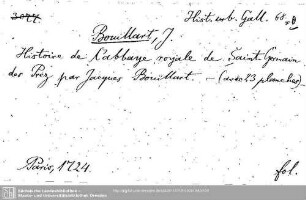 Hist. urb. Gall. 68
Bouillart, J.
Histoire de l'abbaye royale de Saint Germain
des Prez par Jacques Bouillart. — (avec 23 planches).
Paris, 1724.
fol.
Sächsische Landesbibliothek -
Staats- und Universitätsbibliothek Dresden